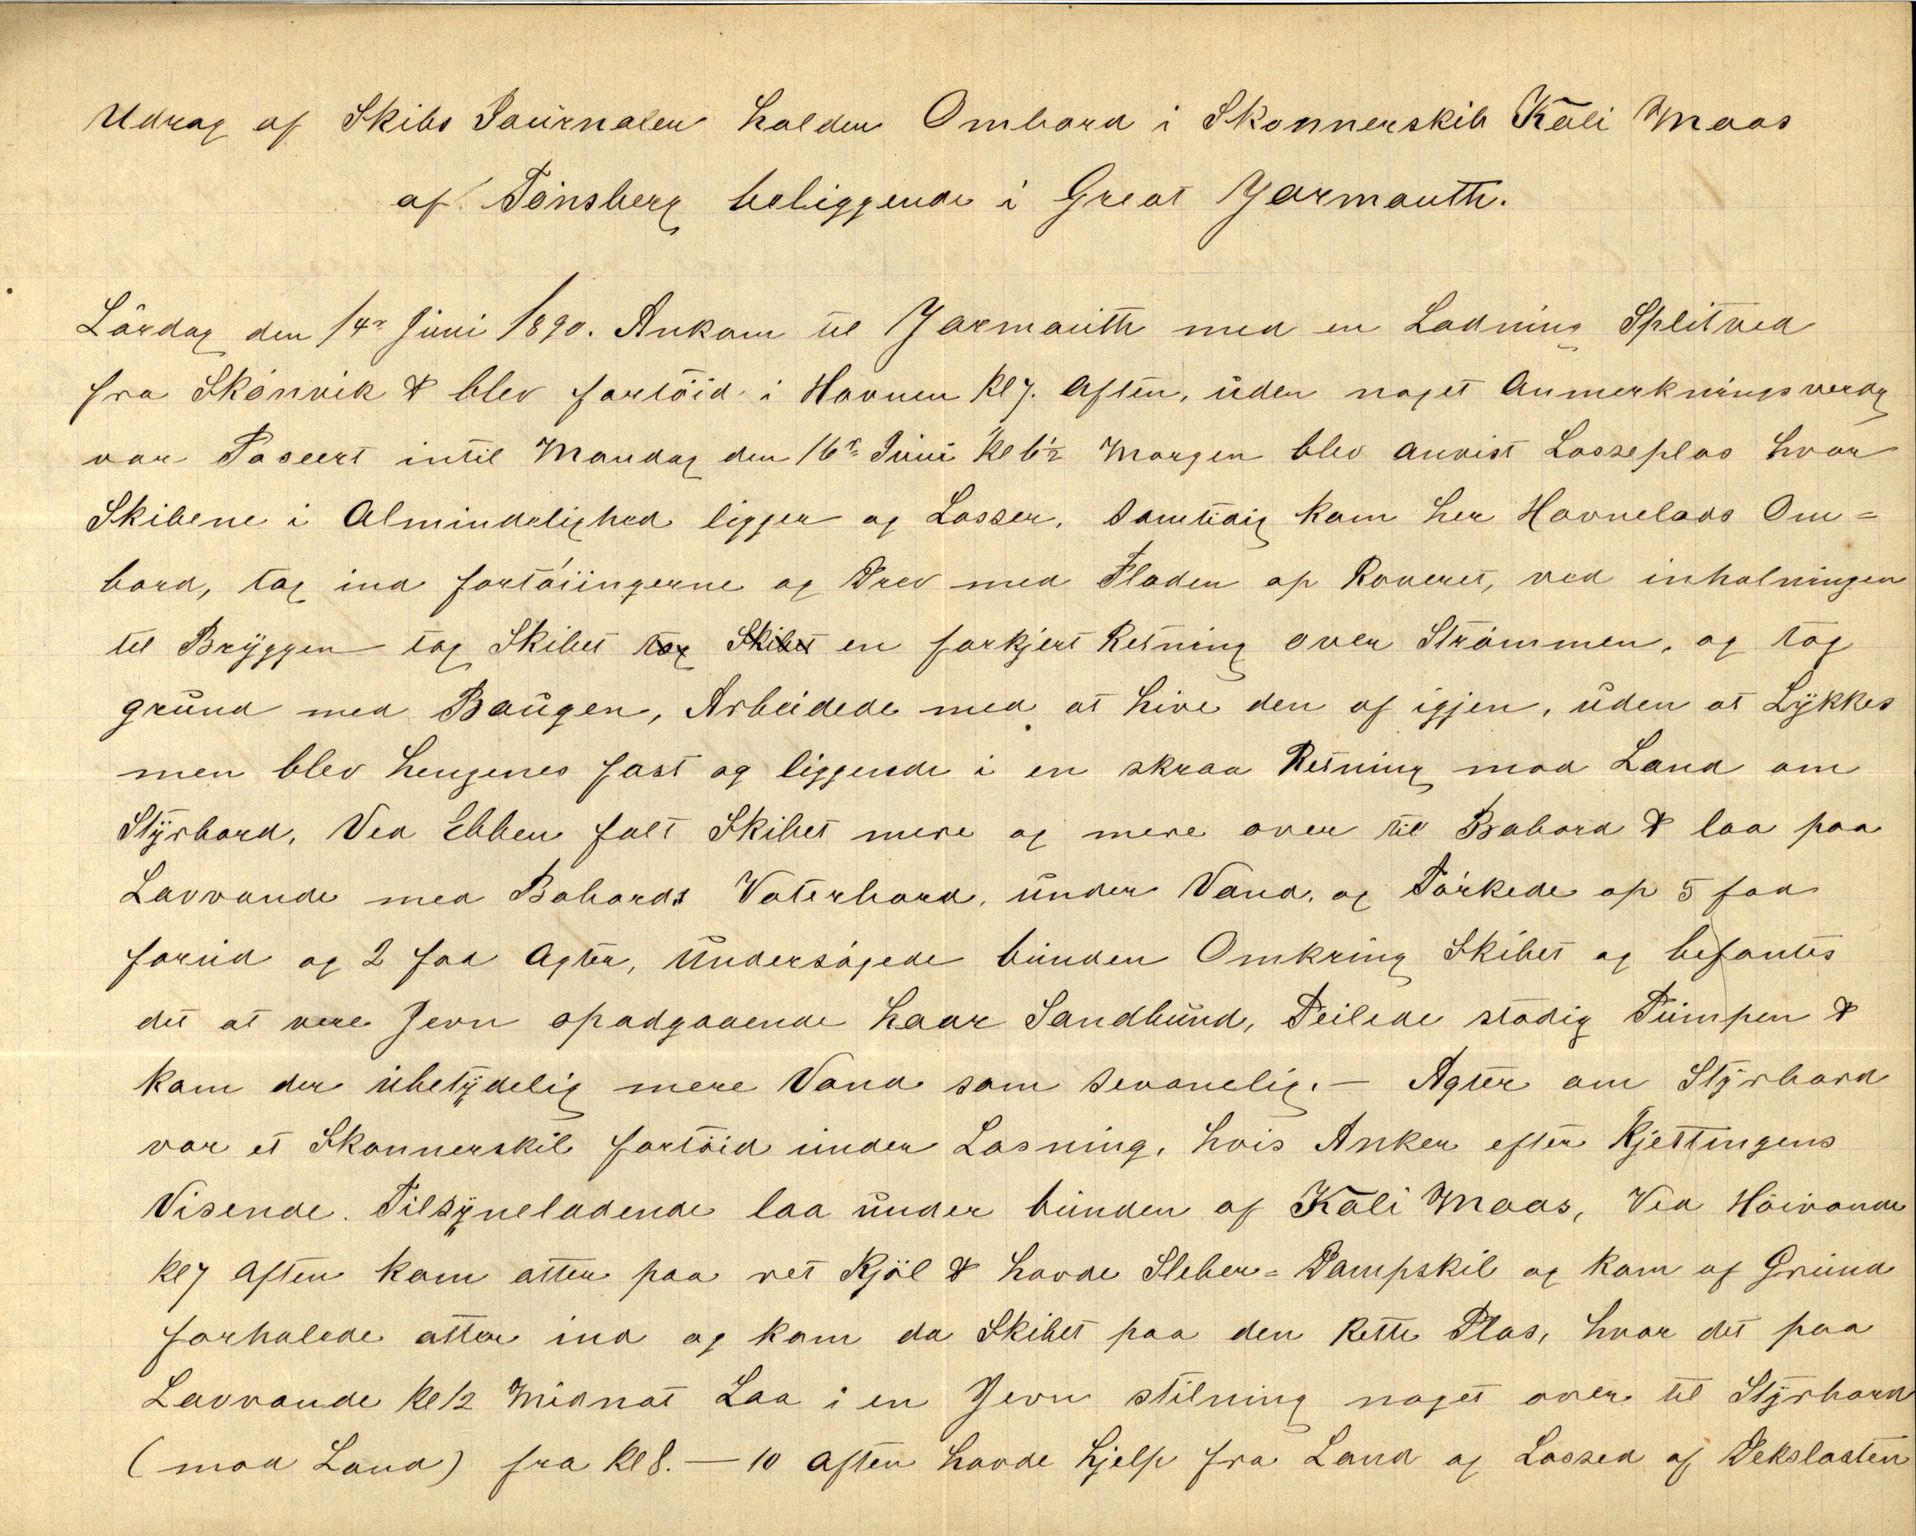 Udrag af Skibs Journalen holden Ombord i Skonnerskib Kali Maas
af Tønsberg beliggende i Great Yarmouth.
Lördag den 14de Juni 1890. Ankom til Yarmouth med en Ladning Splitved
fra Skönvik & blev fortöid i Havnen Kl 7. Aften, uden noget Anmerkningsverdg
var Paseert intil Mandag den 16de Juni Kl 6½ Morgen blev anvist Losseplas hvor
Skibene i Almindelighed ligger og Losser. Samtidig kom her Havnelods Om=
bord, tog ind fortøiingerne og Drev med Floden op Roveret, ved inhalningen
til Bryggen tog Skibet tog Skibet en forkjert Retning over Strømmen, og tog
grund med Baugen, Arbeidede med at hive den af igjen, uden at Lykkes
men blev hengenes fast og liggende i en skraa Retning mod Land om
Styrbord, Ved Ebben falt Skibet mere og mere over til Babord & laa paa
Lavvande med Babords Vaterbord, under Vand, og Tørkede op 5 fod
forud og 2 fod Agter, Undersøgede bunden Omkring Skibet og befantes
det at vere Jevn opadgaaende haar Sandbund, Peilede stadig Pumpen &
kom der ubetydelig mere Vand som sevanelig. — Agter om Styrbord
var et Skonnerskib fortöid under Losning, hvis Anker efter Kjettingens
Visende. Tilsyneladende laa under bunden af Kali Maas, Ved Höivande
Kl 7 Aften kom atter paa ret Kjöl & havde Sleber= Dampskib og kom af Grund
forhalede atter ind og kom da Skibet paa den Rette Plas, hvor det paa
Lavvande Kl ½ Midnat Laa i en Jevn stilning noget over til Styrbord
(mod Land) fra Kl 8. — 10 Aften havde hjelp fra Land og Lossed af Dekslasten